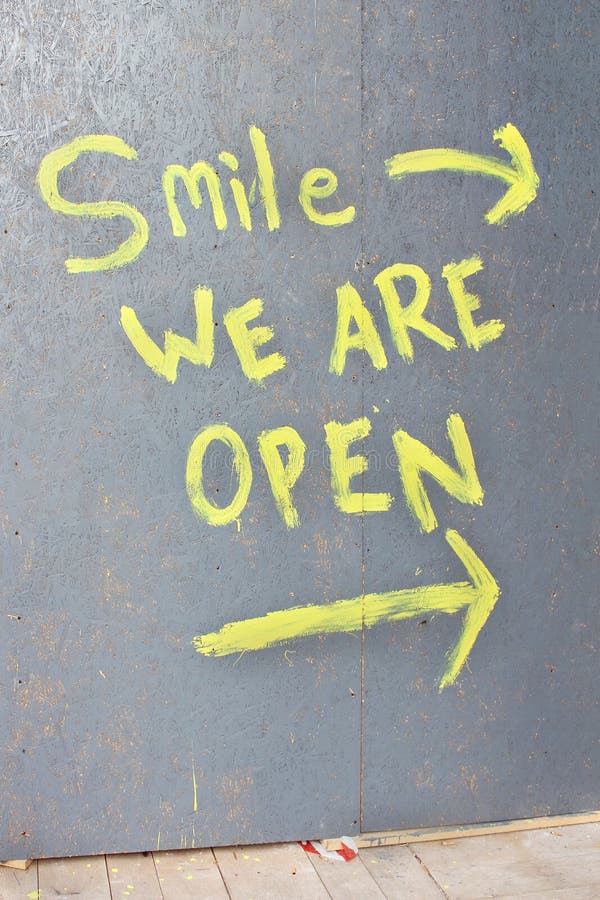 Smile →
WE ARE
OPEN
→